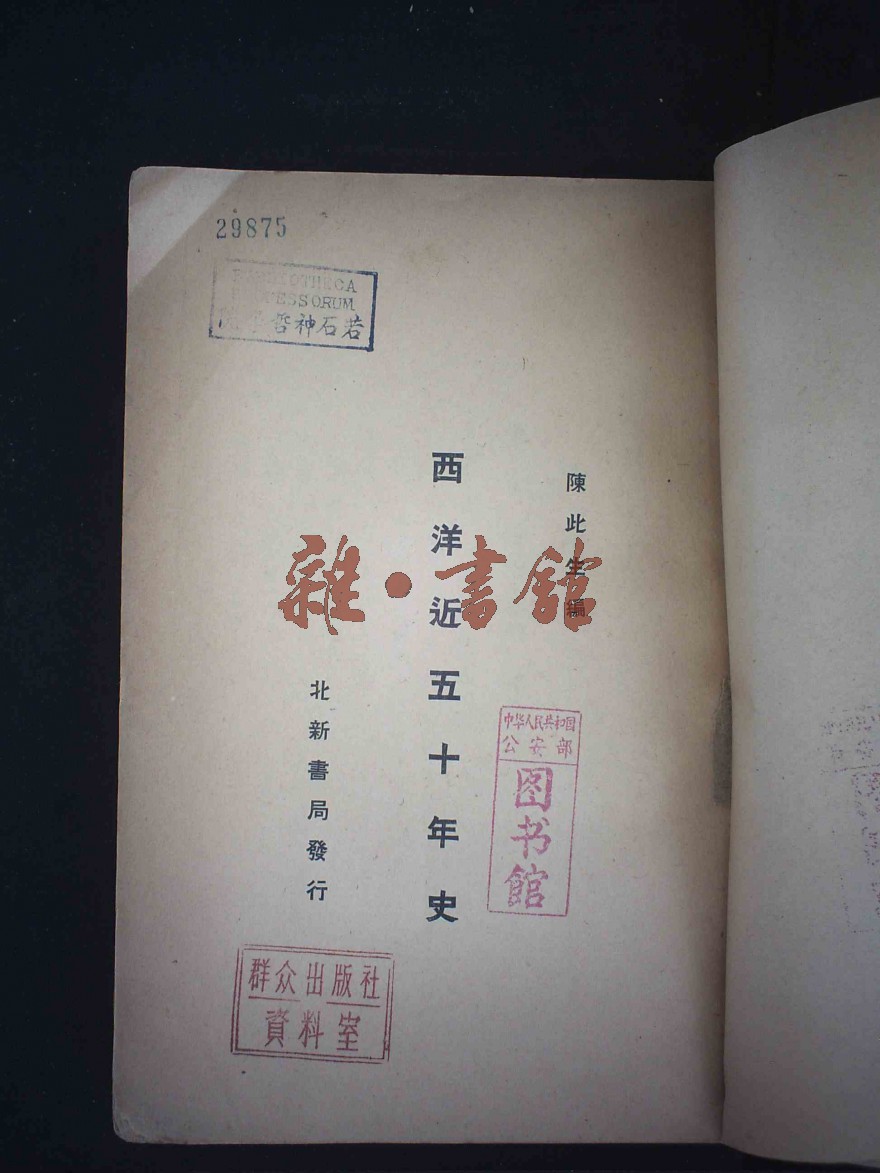 29875
BIBLIOTHECA
ESSORUM
若石神哲
陳此生編
西洋近五十年史
北新書局發行
雜·書館
中华人民共和国
公安部
图书馆
群众出版社
資料室